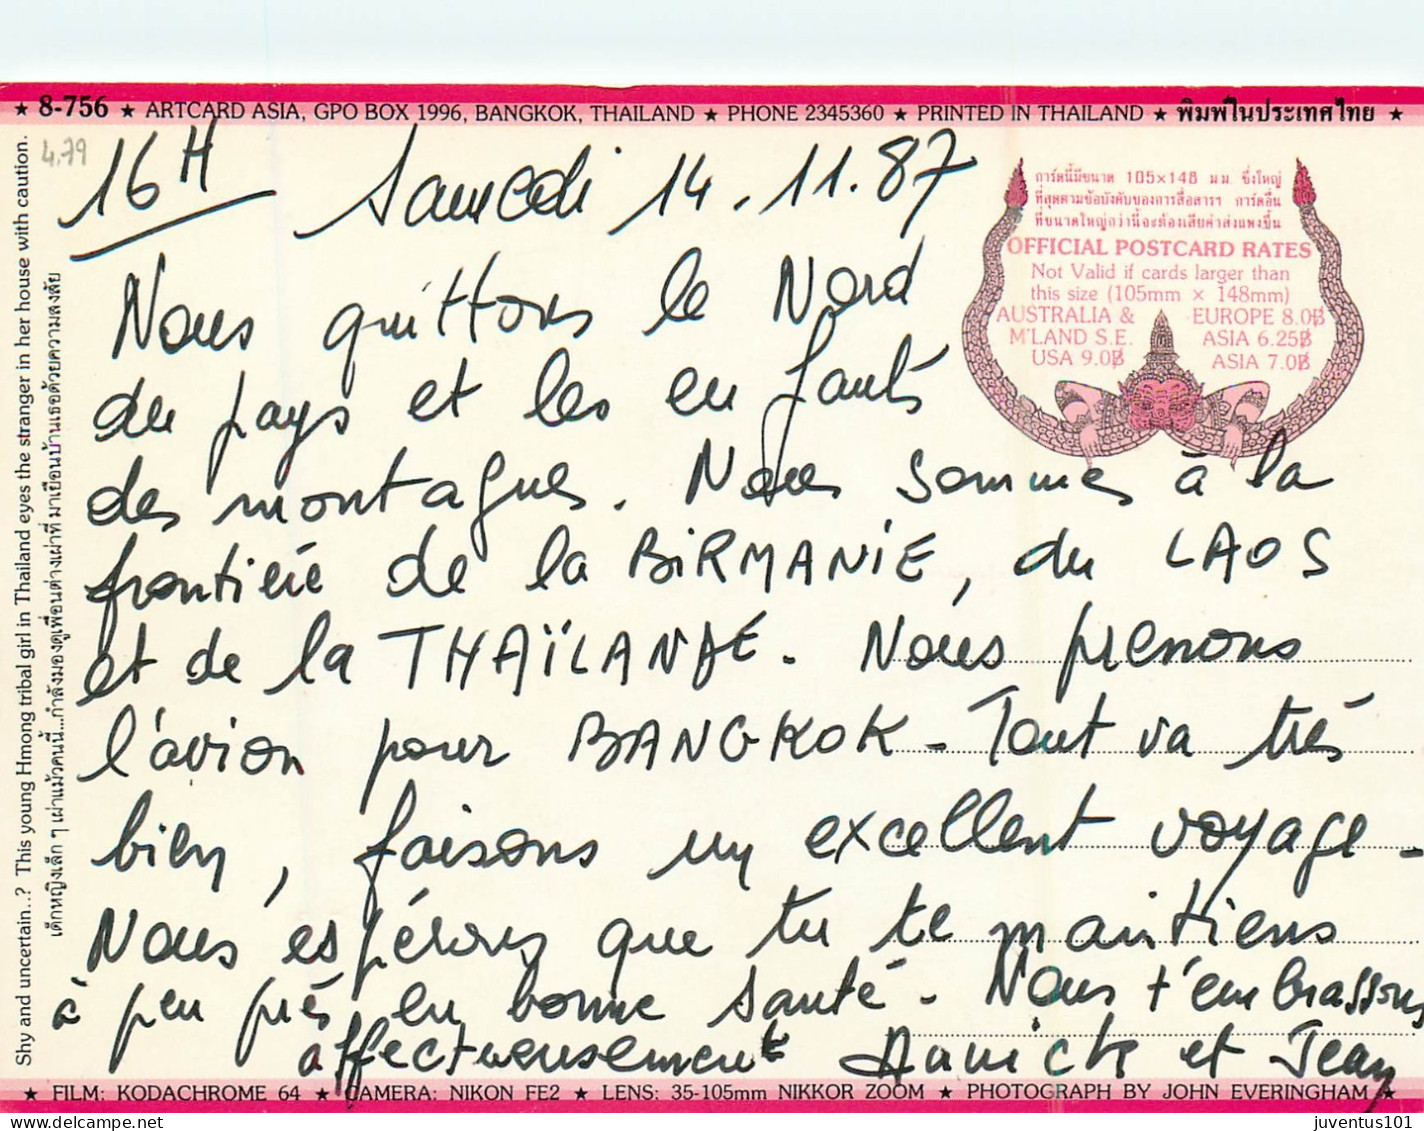 ★ 8-756 ★ ARTCARD ASIA, GPO BOX 1996, BANGKOK, THAILAND ★ PHONE 2345360 ★ PRINTED IN THAILAND ★ พิมพ์ในประเทศไทย ★
4,79
16H Samedi 14.11.87
Nous quittons le Nord
du pays et les enfants
des montagnes. Nous sommes à la
frontière de la BIRMANIE, du LAOS
et de la THAÏLANDE. Nous prenons
l'avion pour BANGKOK - Tout va très
bien, faisons un excellent voyage -
Nous espérons que tu te maintiens
à peu près en bonne santé. Nous t'embrassons
affectueusement Annick et Jean
การ์ดนี้มีขนาด 105×148 มม. ซึ่งใหญ่
ที่สุดตามข้อบังคับของการสื่อสารฯ การ์ดอื่น
ที่ขนาดใหญ่กว่านี้จะต้องเสียค่าส่งแพงขึ้น
OFFICIAL POSTCARD RATES
Not Valid if cards larger than
this size (105mm × 148mm)
AUSTRALIA & EUROPE 8.0฿
M'LAND S.E. ASIA 6.25฿
USA 9.0฿ ASIA 7.0฿
Shy and uncertain..? This young Hmong tribal girl in Thailand eyes the stranger in her house with caution.
เด็กหญิงเล็ก ๆ เผ่าแม้วคนนี้...กำลังมองดูเพื่อนต่างเผ่าที่มาเยือนบ้านเธอด้วยความสงสัย
★ FILM: KODACHROME 64 ★ CAMERA: NIKON FE2 ★ LENS: 35-105mm NIKKOR ZOOM ★ PHOTOGRAPH BY JOHN EVERINGHAM ★
juventus101